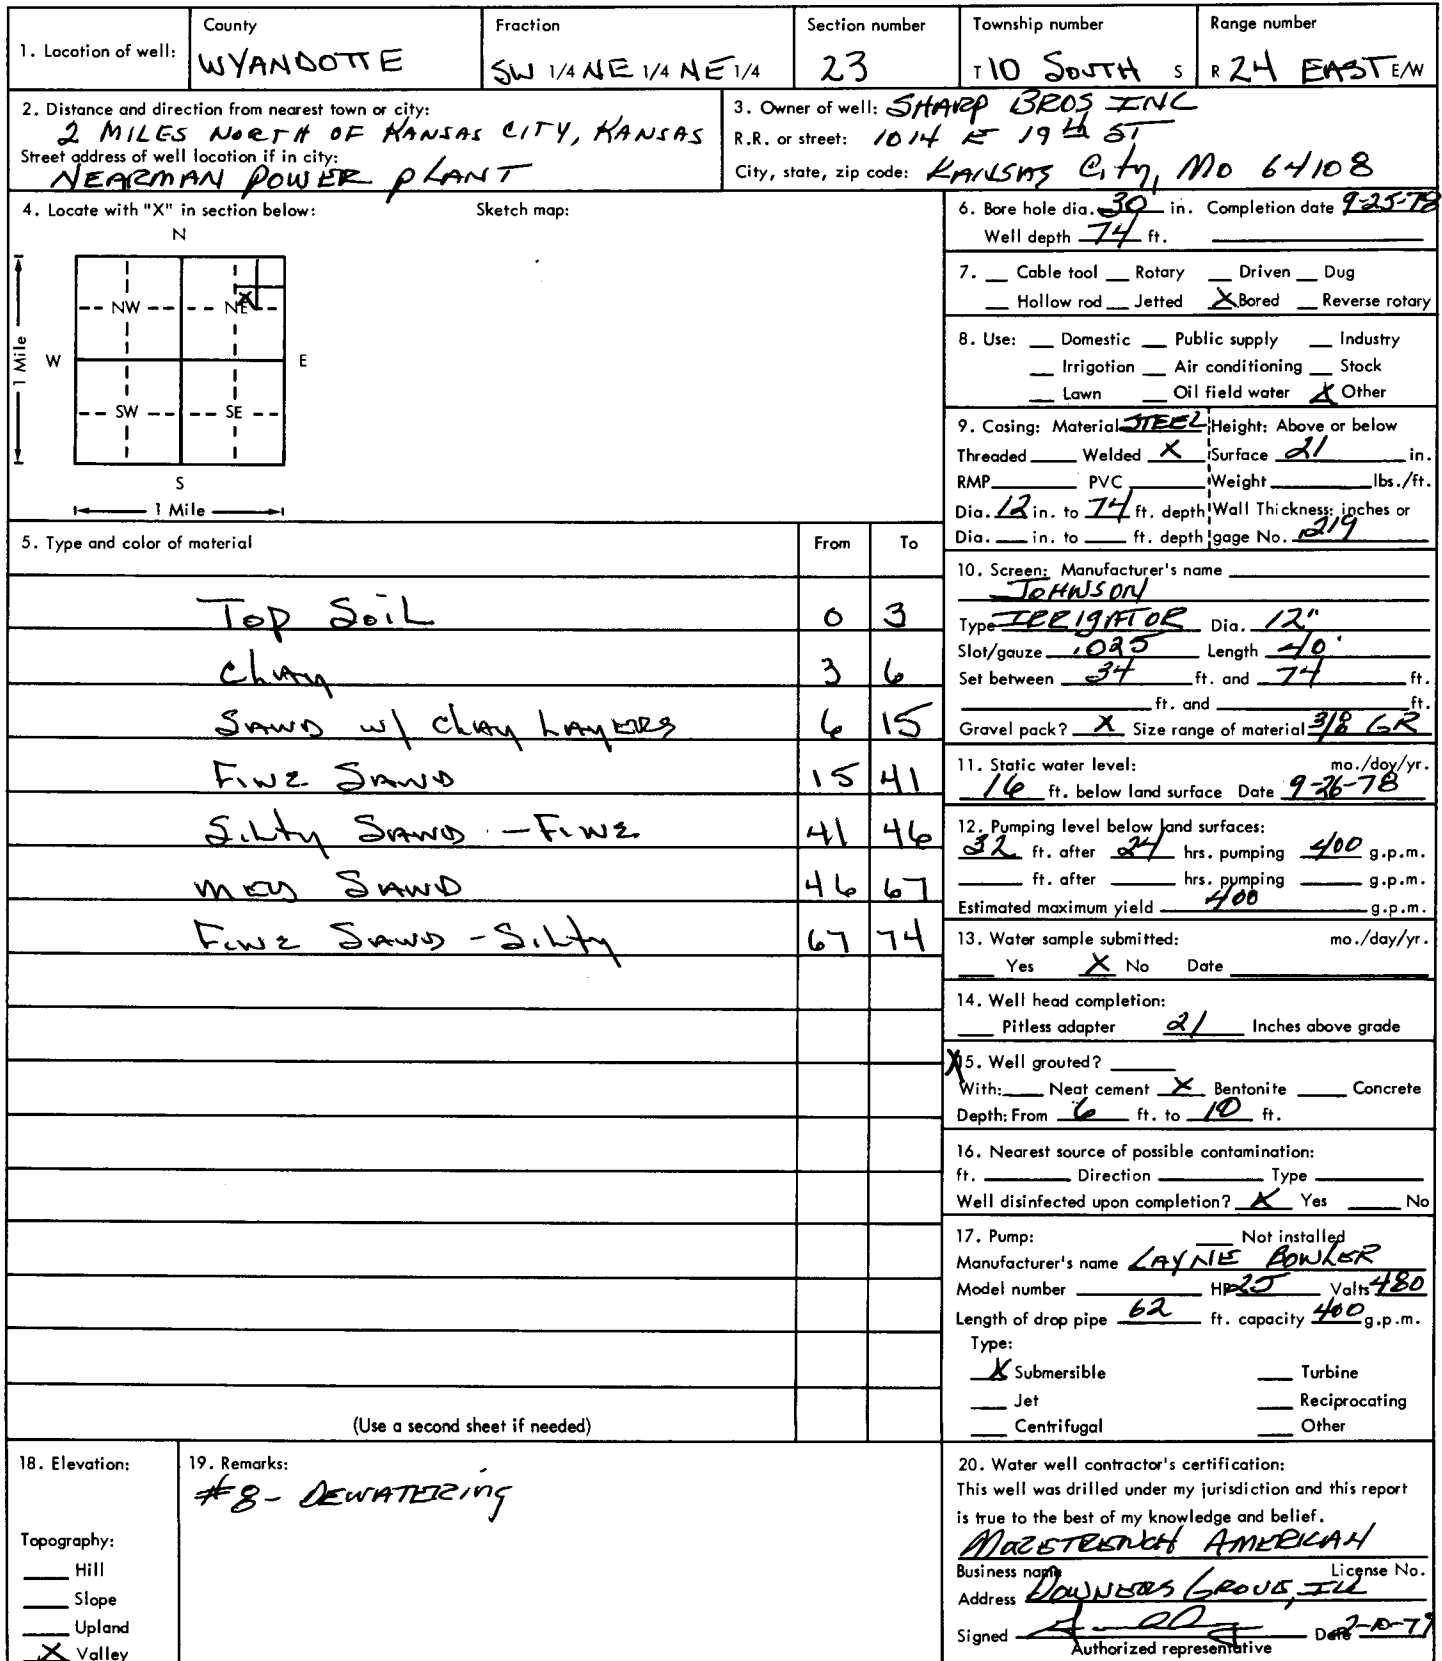 1. Location of well:
County
WYANDOTTE
Fraction
SW 1/4 NE 1/4 NE 1/4
Section number
23
Township number
T 10 SOUTH S
Range number
R 24 EAST E/W
2. Distance and direction from nearest town or city:
2 MILES NORTH OF KANSAS CITY, KANSAS
Street address of well location if in city:
NEARMAN POWER PLANT
3. Owner of well: SHARP BROS INC
R.R. or street: 1014 E 19th ST
City, state, zip code: KANSAS City, MO 64108
4. Locate with "X" in section below:
Sketch map:
N
NW NE
X
W E
SW SE
S
1 Mile
1 Mile
5. Type and color of material From To
Top Soil 0 3
Clay 3 6
SAND w/ Clay LAYERS 6 15
FINE SAND 15 41
Silty SAND - FINE 41 46
MED SAND 46 67
FINE SAND - Silty 67 74
(Use a second sheet if needed)
6. Bore hole dia. 30 in. Completion date 9-25-78
Well depth 74 ft.
7. Cable tool Rotary Driven Dug
Hollow rod Jetted X Bored Reverse rotary
8. Use: Domestic Public supply Industry
Irrigation Air conditioning Stock
Lawn Oil field water X Other
9. Casing: Material STEEL Height: Above or below
Threaded Welded X Surface 21 in.
RMP PVC Weight lbs./ft.
Dia. 12 in. to 74 ft. depth Wall Thickness: inches or
Dia. in. to ft. depth gage No. .219
10. Screen: Manufacturer's name
JOHNSON
Type IRRIGATOR Dia. 12"
Slot/gauze .025 Length 40'
Set between 34 ft. and 74 ft.
ft. and ft.
Gravel pack? X Size range of material 3/8 GR
11. Static water level: mo./day/yr.
16 ft. below land surface Date 9-26-78
12. Pumping level below land surfaces:
32 ft. after 24 hrs. pumping 400 g.p.m.
ft. after hrs. pumping g.p.m.
Estimated maximum yield 400 g.p.m.
13. Water sample submitted: mo./day/yr.
Yes X No Date
14. Well head completion:
Pitless adapter 21 Inches above grade
X
15. Well grouted?
With: Neat cement X Bentonite Concrete
Depth: From 6 ft. to 10 ft.
16. Nearest source of possible contamination:
ft. Direction Type
Well disinfected upon completion? X Yes No
17. Pump: Not installed
Manufacturer's name LAYNE BOWLER
Model number HP 25 Volts 480
Length of drop pipe 62 ft. capacity 400 g.p.m.
Type:
X Submersible Turbine
Jet Reciprocating
Centrifugal Other
18. Elevation:
Topography:
Hill
Slope
Upland
X Valley
19. Remarks:
#8- DEWATERING
20. Water well contractor's certification:
This well was drilled under my jurisdiction and this report
is true to the best of my knowledge and belief.
MORETRENCH AMERICAN
Business name License No.
Address DOWNERS GROVE, ILL
Signed Date 2-10-79
Authorized representative